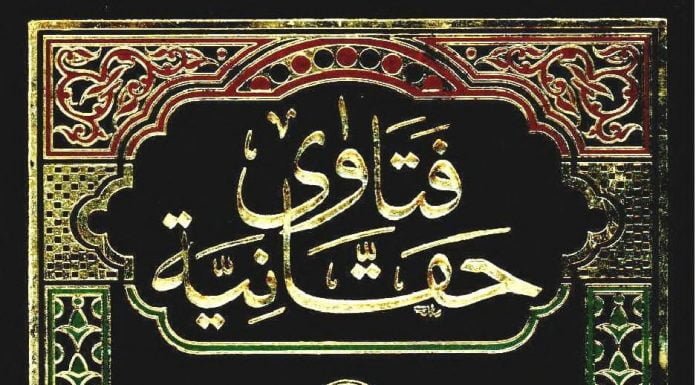 فتاوی
حقانیة